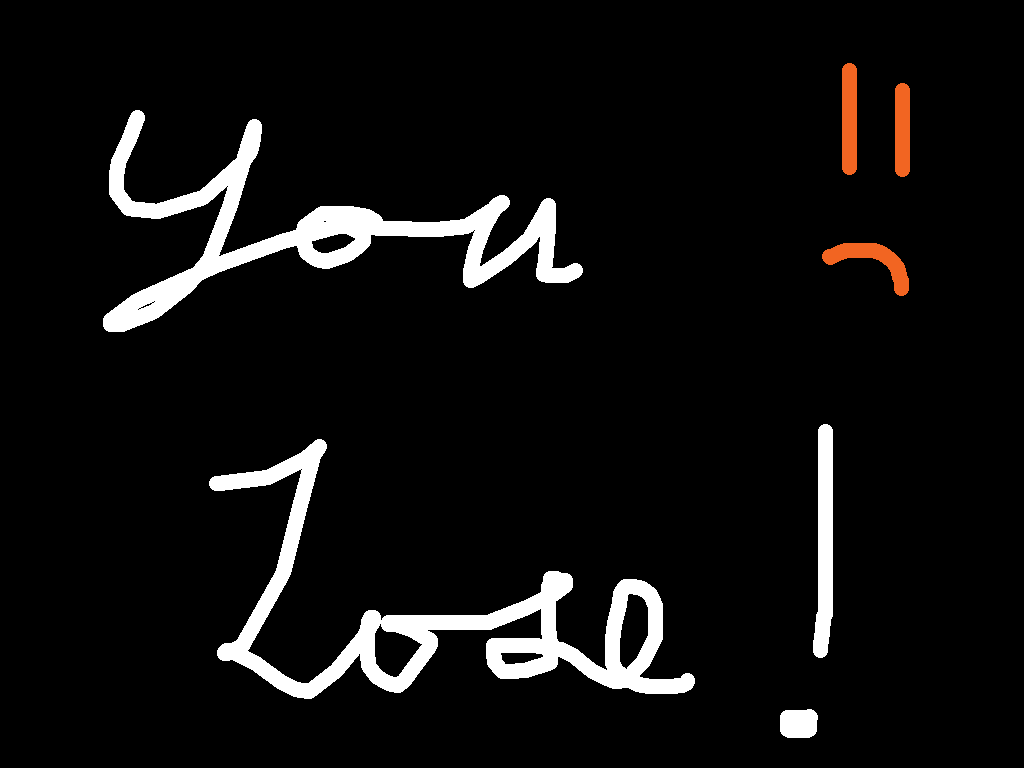 You
Lose!